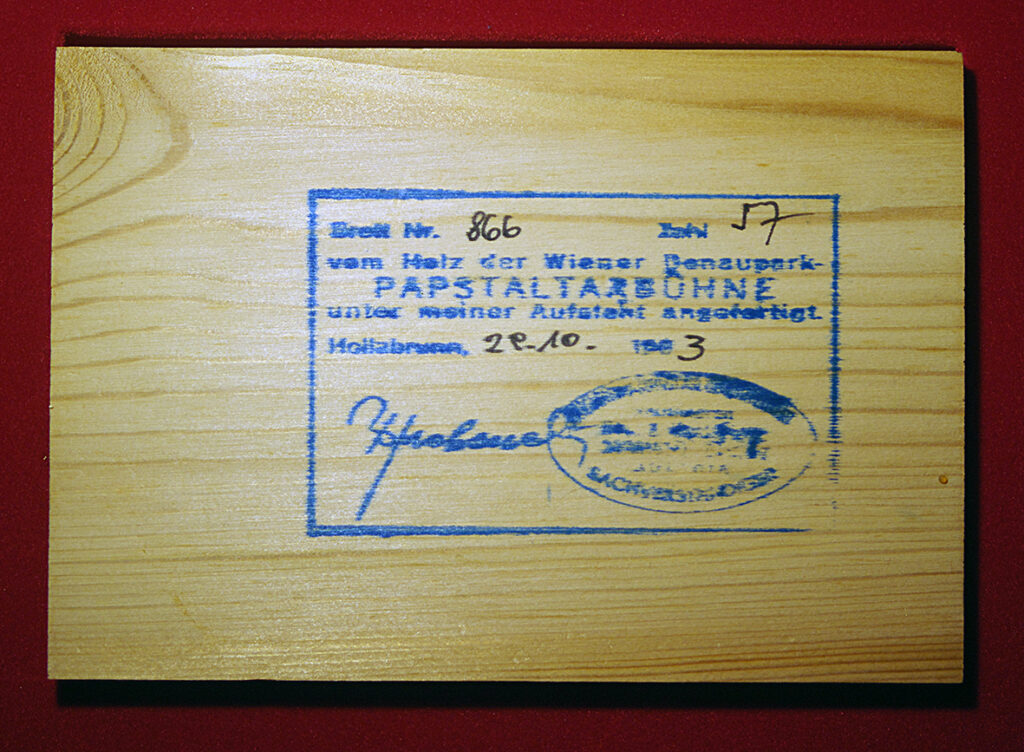 Brett Nr. 866 Zahl 57
vom Holz der Wiener Donaupark-
PAPSTALTARBÜHNE
unter meiner Aufsicht angefertigt.
Hollabrunn, 28.10. 1983
AUSTRIA
SACHVERSTÄNDIGER